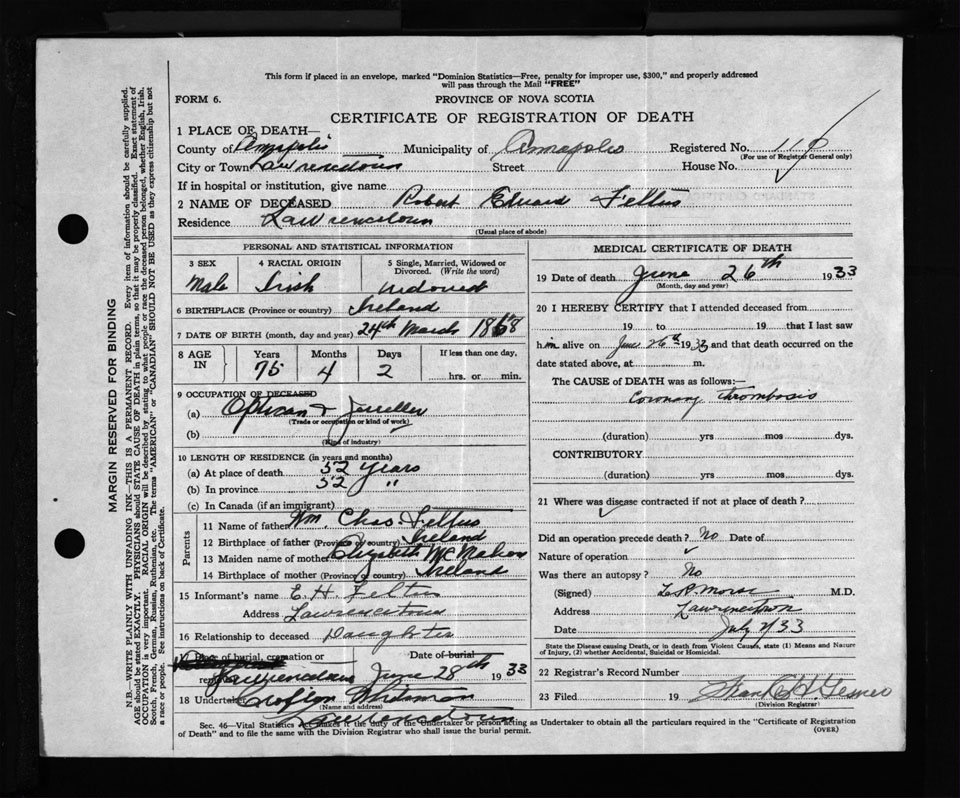 This form if placed in an envelope, marked "Dominion Statistics—Free, penalty for improper use, $300," and properly addressed
will pass through the Mail "FREE"
FORM 6.
PROVINCE OF NOVA SCOTIA
CERTIFICATE OF REGISTRATION OF DEATH
1 PLACE OF DEATH—
County of Annapolis Municipality of Annapolis Registered No. 11
(For use of Registrar General only)
City or Town Lawrencetown Street House No.
If in hospital or institution, give name
2 NAME OF DECEASED Robert Edward Feltus
Residence Lawrencetown
(Usual place of abode)
PERSONAL AND STATISTICAL INFORMATION
3 SEX 4 RACIAL ORIGIN 5 Single, Married, Widowed or
Divorced. (Write the word)
Male Irish Widowed
6 BIRTHPLACE (Province or country) Ireland
7 DATE OF BIRTH (month, day and year) 24th March 1858
8 AGE IN Years Months Days If less than one day,
75 4 2 hrs. or min.
9 OCCUPATION OF DECEASED
(a) Optican & Jeweller
(Trade or occupation or kind of work)
(b)
(Kind of industry)
10 LENGTH OF RESIDENCE (in years and months)
(a) At place of death 52 years
(b) In province 52 "
(c) In Canada (if an immigrant)
Parents
11 Name of father Wm. Chas. Feltus
12 Birthplace of father (Province or country) Ireland
13 Maiden name of mother Elizabeth McMahon
14 Birthplace of mother (Province or country) Ireland
15 Informant's name E. H. Feltus
Address Lawrencetown
16 Relationship to deceased Daughter
17 Place of burial, cremation or Date of burial
Lawrencetown June 28th 1933
18 Undertaker Whitman
(Name and address)
Lawrencetown
MEDICAL CERTIFICATE OF DEATH
19 Date of death June 26th 1933
(Month, day and year)
20 I HEREBY CERTIFY that I attended deceased from
19 to 19 that I last saw
him alive on June 26th 1933 and that death occurred on the
date stated above, at m.
The CAUSE OF DEATH was as follows:—
Coronary thrombosis
(duration) yrs mos dys.
CONTRIBUTORY
(duration) yrs mos dys.
21 Where was disease contracted if not at place of death?
Did an operation precede death? No Date of
Nature of operation
Was there an autopsy? No
(Signed) L.R. Morse M.D.
Address Lawrencetown
Date July 2/33
State the Disease causing Death, or in death from Violent Causes, state (1) Means and Nature
of Injury, (2) whether Accidental, Suicidal or Homicidal.
22 Registrar's Record Number
23 Filed 19
(Division Registrar)
Sec. 46—Vital Statistics Act makes it the duty of the Undertaker or person acting as Undertaker to obtain all the particulars required in the "Certificate of Registration
of Death" and to file the same with the Division Registrar who shall issue the burial permit.
(OVER)
MARGIN RESERVED FOR BINDING
N.B.—WRITE PLAINLY WITH UNFADING INK—THIS IS A PERMANENT RECORD. Every item of information should be carefully supplied.
AGE should be stated EXACTLY. PHYSICIANS should STATE CAUSE OF DEATH in plain terms, so that it may be properly classified. Exact statement of
OCCUPATION is very important. RACIAL ORIGIN will be described by stating to what people or race the deceased person belonged, whether English, Irish,
Scotch, French, German, Russian, Ruthenian, etc. The terms "AMERICAN" or "CANADIAN" SHOULD NOT BE USED as they express citizenship but not
a race or people. See instructions on back of Certificate.